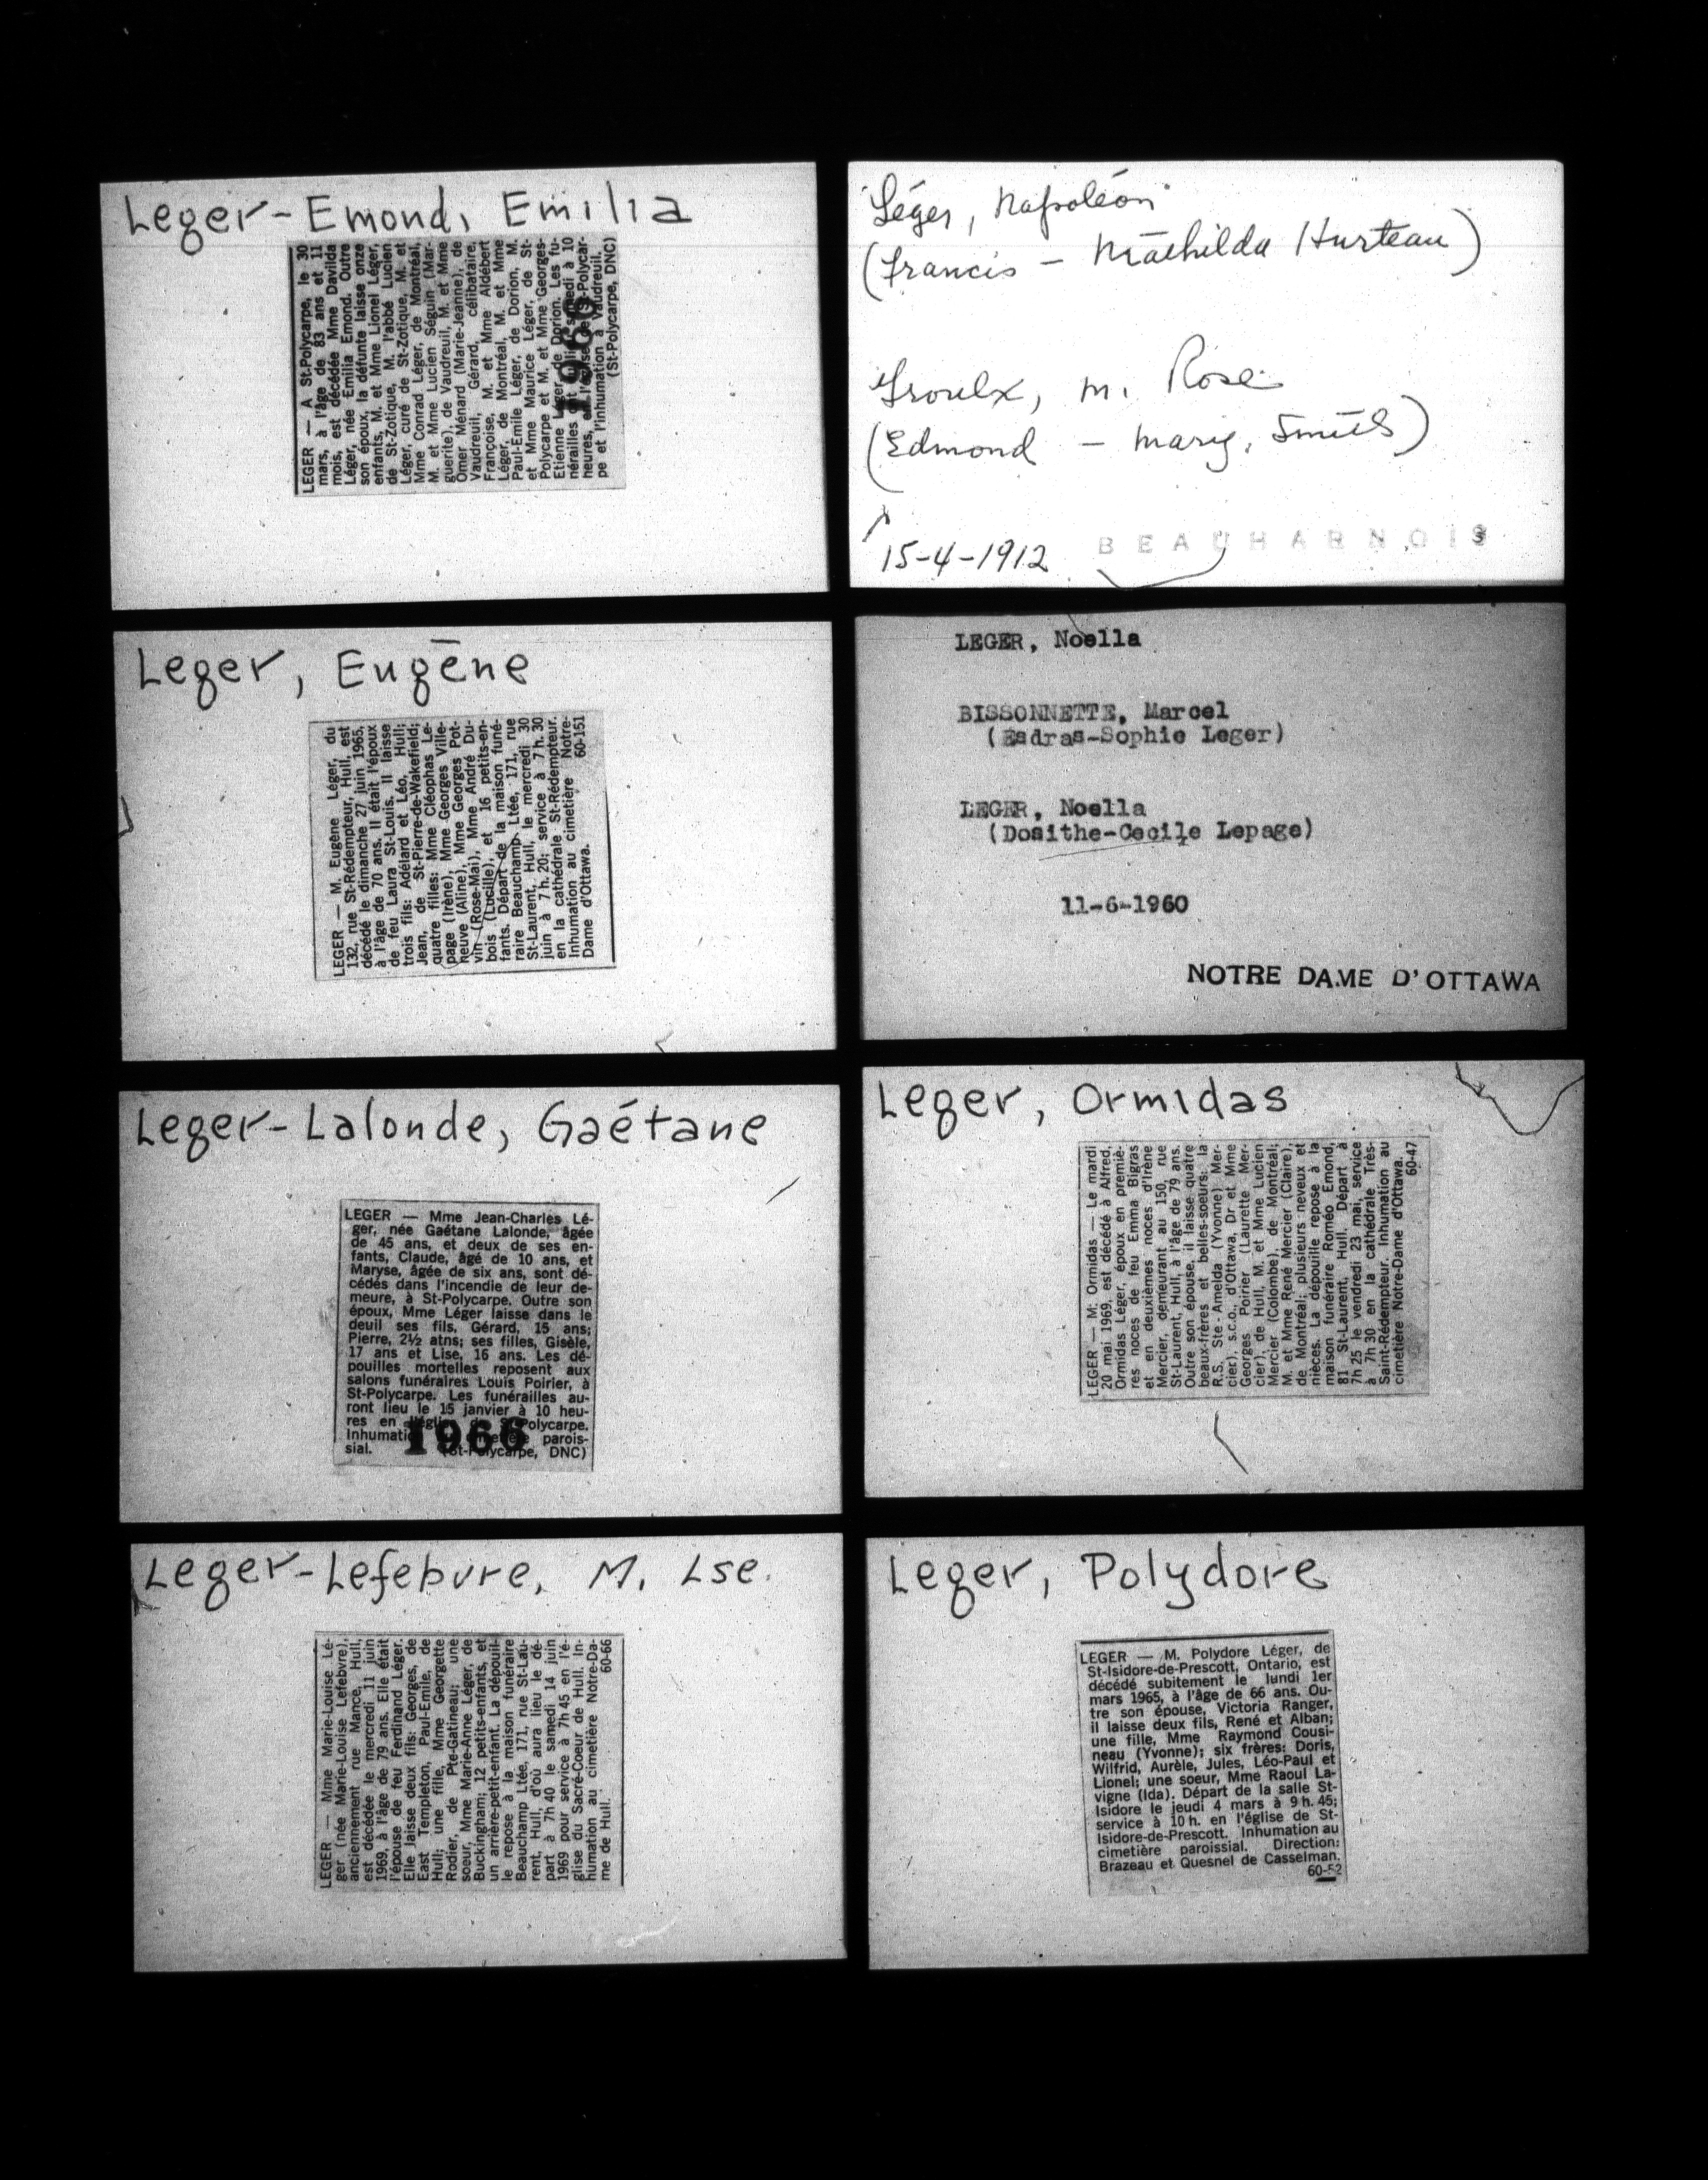 Leger-Emond, Emilia
LEGER — A St-Polycarpe, le 30
mars, à l'âge de 83 ans et 11
mois, est décédée Mme Davilda
Léger, née Emilia Emond. Outre
son époux, la défunte laisse onze
enfants, M. et Mme Lionel Léger,
de St-Zotique, M. l'abbé Lucien
Léger, curé de St-Zotique, M. et
Mme Conrad Léger, de Montréal,
M. et Mme Lucien Séguin (Mar-
guerite), de Vaudreuil, M. et Mme
Omer Ménard (Marie-Jeanne), de
Vaudreuil, Gérard, célibataire,
Françoise, M. et Mme Aldébert
Léger, de Montréal, M. et Mme
Paul-Emile Léger, de Dorion, M.
et Mme Maurice Léger, de St-
Polycarpe et M. et Mme Georges-
Etienne Léger, de Dorion. Les fu-
nérailles ont lieu samedi à 10
heures, en l'église de St-Polycar-
pe et l'inhumation à Vaudreuil.
(St-Polycarpe, DNC)
Léger, Napoléon
(Francis — Mathilda Hurteau)
Groulx, M. Rose
(Edmond — Mary, Smith)
15-4-1912 BEAUHARNOIS
Leger, Eugène
LEGER — M. Eugène Léger, du
132, rue St-Rédempteur, Hull, est
décédé le dimanche 27 juin 1965,
à l'âge de 70 ans. Il était l'époux
de feu Laura St-Louis. Il laisse
trois fils: Adélard et Léo, Hull;
Jean, de St-Pierre-de-Wakefield;
quatre filles: Mme Cléophas Le-
page (Irène), Mme Georges Ville-
neuve (Aline), Mme Georges Pot-
vin (Rose-Mai), Mme André Du-
bois (Lucille), et 16 petits-en-
fants. Départ de la maison funé-
raire Beauchamp Ltée, 171, rue
St-Laurent, Hull, le mercredi 30
juin à 7 h. 20; service à 7 h. 30
en la cathédrale St-Rédempteur.
Inhumation au cimetière Notre-
Dame d'Ottawa. 60-151
LEGER, Noella
BISSONNETTE, Marcel
(Esdras-Sophie Leger)
LEGER, Noella
(Dosithe-Cecile Lepage)
11-6-1960
NOTRE DAME D'OTTAWA
Leger-Lalonde, Gaétane
LEGER — Mme Jean-Charles Lé-
ger, née Gaétane Lalonde, âgée
de 45 ans, et deux de ses en-
fants, Claude, âgé de 10 ans, et
Maryse, âgée de six ans, sont dé-
cédés dans l'incendie de leur de-
meure, à St-Polycarpe. Outre son
époux, Mme Léger laisse dans le
deuil ses fils, Gérard, 15 ans;
Pierre, 2½ atns; ses filles, Gisèle,
17 ans et Lise, 16 ans. Les dé-
pouilles mortelles reposent aux
salons funéraires Louis Poirier, à
St-Polycarpe. Les funérailles au-
ront lieu le 15 janvier à 10 heu-
res en l'église de St-Polycarpe.
Inhumation cimetière parois-
sial. (St-Polycarpe, DNC)
1966
Leger, Ormidas
LEGER — M. Ormidas — Le mardi
20 mai 1969, est décédé à Alfred,
Ormidas Léger, époux en premiè-
res noces de feu Emma Bigras
et en deuxièmes noces d'Irène
Mercier, demeurant au 150, rue
St-Laurent, Hull, à l'âge de 79 ans.
Outre son épouse, il laisse quatre
beaux-frères et belles-soeurs: la
R.S. Ste-Amelda (Yvonne) Mer-
cier), s.c.o., d'Ottawa, Dr et Mme
Georges Poirier (Laurette Mer-
cier), de Hull, M. et Mme Lucien
Mercier (Colombe), de Montréal;
M. et Mme René Mercier (Claire),
de Montréal; plusieurs neveux et
nièces. La dépouille repose à la
maison funéraire Roméo Emond,
81 St-Laurent, Hull. Départ à
7h 25 le vendredi 23 mai, service
à 7h 30 en la cathédrale Très-
Saint-Rédempteur. Inhumation au
cimetière Notre-Dame d'Ottawa.
60-47
Leger-Lefebvre, M. Lse.
LEGER — Mme Marie-Louise Lé-
ger (née Marie-Louise Lefebvre),
anciennement rue Mance, Hull,
est décédée le mercredi 11 juin
1969, à l'âge de 79 ans. Elle était
l'épouse de feu Ferdinand Léger.
Elle laisse deux fils: Georges, de
East Templeton, Paul-Emile, de
Hull; une fille, Mme Georgette
Rodier, de Pte-Gatineau; une
soeur, Mme Marie-Anne Léger, de
Buckingham; 12 petits-enfants, et
un arrière-petit-enfant. La dépouil-
le repose à la maison funéraire
Beauchamp Ltée, 171, rue St-Lau-
rent, Hull, d'où aura lieu le dé-
part à 7h 40 le samedi 14 juin
1969 pour service à 7h 45 en l'é-
glise du Sacré-Coeur de Hull. In-
humation au cimetière Notre-Da-
me de Hull. 60-66
Leger, Polydore
LEGER — M. Polydore Léger, de
St-Isidore-de-Prescott, Ontario, est
décédé subitement le lundi 1er
mars 1965, à l'âge de 66 ans. Ou-
tre son épouse, Victoria Ranger,
il laisse deux fils, René et Alban;
une fille, Mme Raymond Cousi-
neau (Yvonne); six frères: Doris,
Wilfrid, Aurèle, Jules, Léo-Paul et
Lionel; une soeur, Mme Raoul La-
vigne (Ida). Départ de la salle St-
Isidore le jeudi 4 mars à 9 h. 45;
service à 10 h. en l'église de St-
Isidore-de-Prescott. Inhumation au
cimetière paroissial. Direction:
Brazeau et Quesnel de Casselman.
60-52